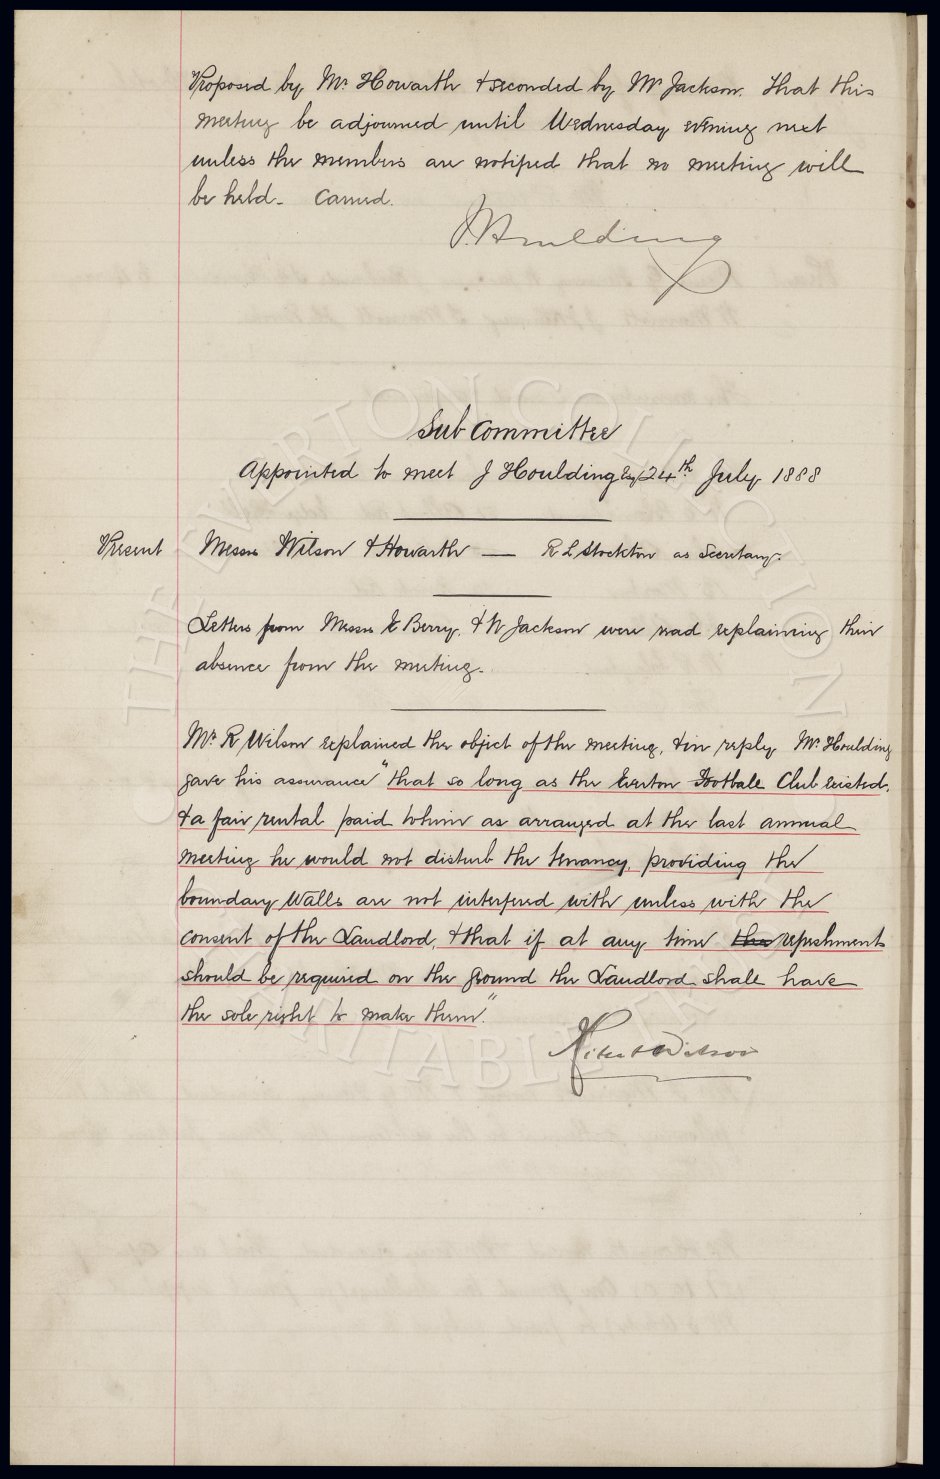 Proposed by Mr Howarth & seconded by Mr Jackson. That this
meeting be adjourned until Wednesday evening next
unless the members are notified that no meeting will
be held – Carried.
J Houlding
Sub Committee
Appointed to meet J Houlding Esq 24th July 1888
Present Messrs Wilson & Howarth — R L Stockton as Secretary.
Letters from Messrs E Berry, & W Jackson were read explaining their
absence from the meeting.
Mr R Wilson explained the object of the meeting, & in reply Mr Houlding
gave his assurance "that so long as the Everton Football Club existed,
& a fair rental paid to him as arranged at the last annual
meeting he would not disturb the tenancy, providing the
boundary Walls are not interfered with unless with the
consent of the Landlord, & that if at any time the refreshments
should be required on the ground the Landlord shall have
the sole right to make them."
Robert Wilson
THE EVERTON COLLECTION CHARITABLE TRUST